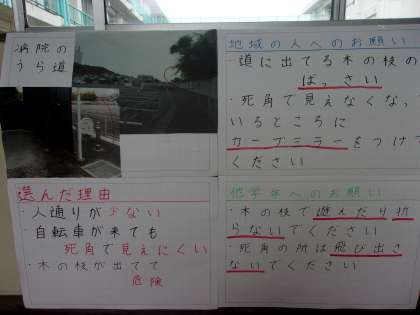 病院の
うら道
選んだ理由
・人通りが少ない
・自転車が来ても
死角で見えにくい
・木の枝が出てて
危険
地域の人へのお願い
・道に出てる木の枝の
ばっさい
・死角で見えなくなって
いるところに
カーブミラーをつけて
ください
他学年へのお願い
・木の枝で遊んだり折
らないでください
・死角の所は飛び出さ
ないでください